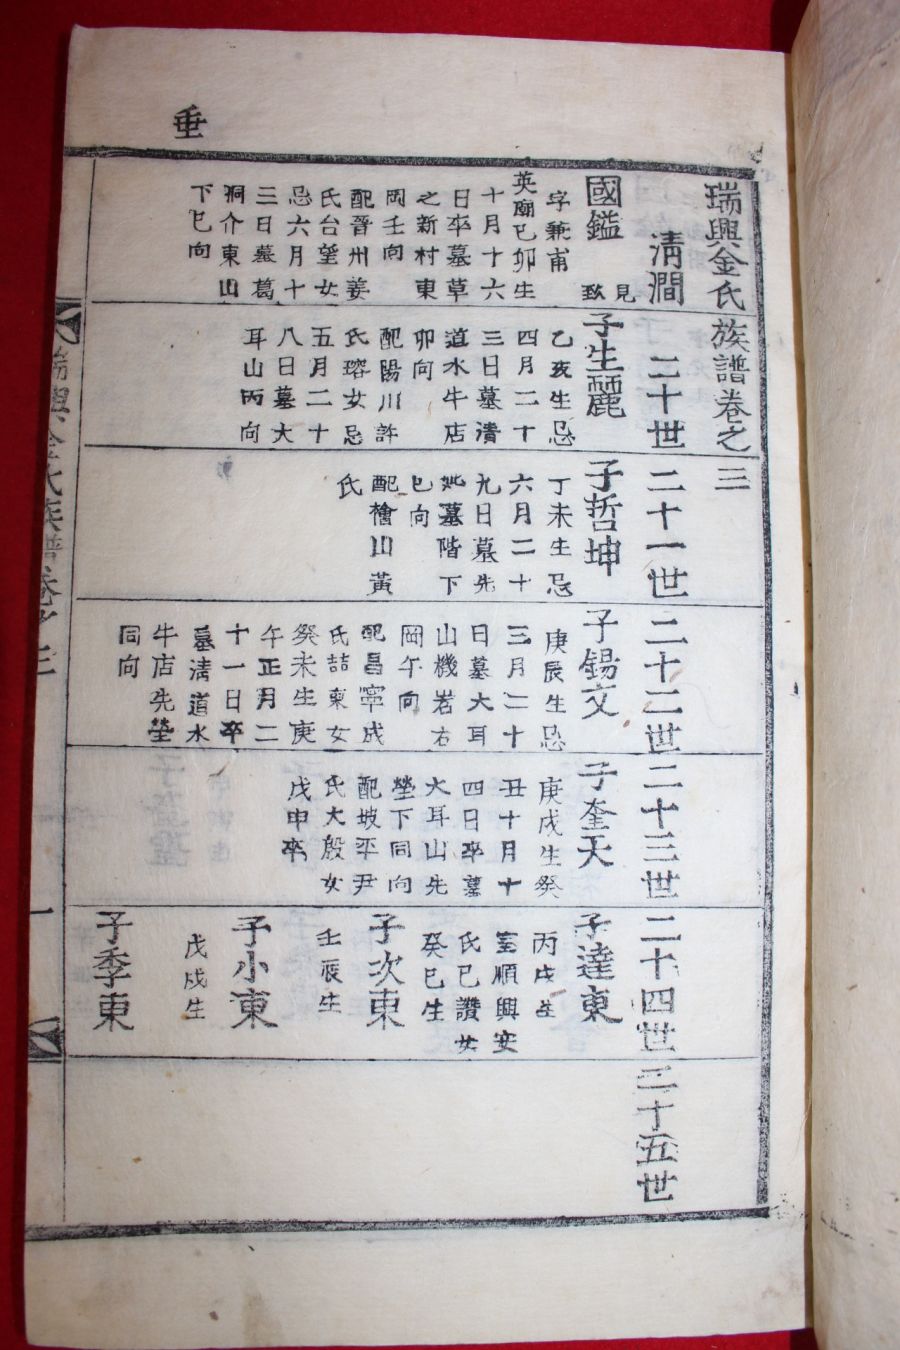 垂
瑞興金氏族譜卷之三
清澗
二十世
二十一世
二十二世
二十三世
二十四世
二十五世
國鑑
見
致
字兼甫
英廟己卯生
十月十六
日卒墓草
之新村東
岡壬向
配晉州姜
氏台望女
忌六月十
三日墓葛
洞介東山
下巳向
子生麗
乙亥生忌
四月二十
三日墓清
道水牛店
卯向
配陽川許
氏瑢女忌
五月二十
八日墓大
耳山丙向
子哲坤
丁未生忌
六月二十
九日墓先
妣墓階下
巳向
配檜山黃
氏
子錫文
庚辰生忌
三月二十
日墓大耳
山機岩右
岡午向
配昌寧成
氏喆東女
癸未生庚
午正月二
十一日卒
墓清道水
牛店先塋
同向
子奎天
庚戌生癸
丑十月十
四日卒墓
大耳山先
塋下同向
配坡平尹
氏大殷女
戊申卒
子達東
丙戌生
室順興安
氏巳讚女
癸巳生
子次東
壬辰生
子小東
戊戌生
子季東
瑞興金氏族譜卷之三
一